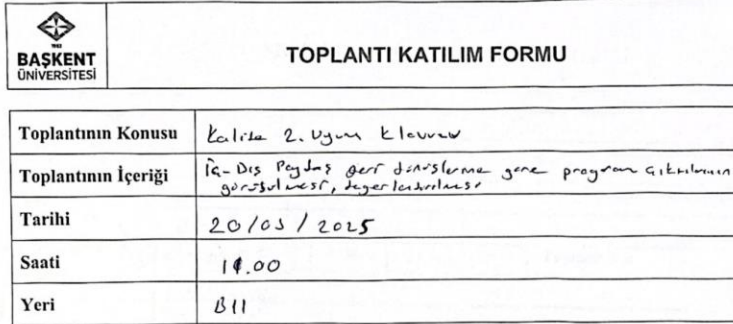 1993
BAŞKENT
ÜNİVERSİTESİ
TOPLANTI KATILIM FORMU
Toplantının Konusu Kalite 2. Uyum
Toplantının İçeriği İç-Dış Paydaş geri dönüşlerine göre program çıktılarının
görüşülmesi, değerlendirilmesi
Tarihi 20/03/2025
Saati .00
Yeri B11